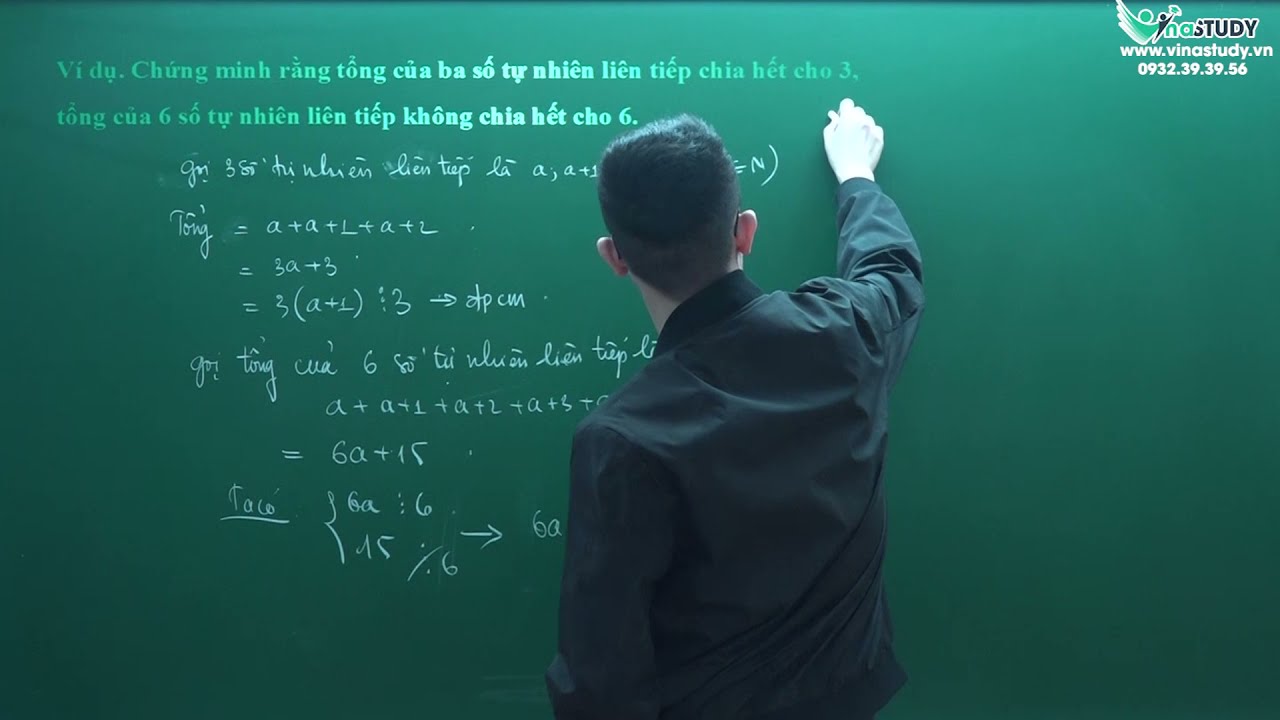 VinaSTUDY
www.vinastudy.vn
0932.39.39.56
Ví dụ. Chứng minh rằng tổng của ba số tự nhiên liên tiếp chia hết cho 3,
tổng của 6 số tự nhiên liên tiếp không chia hết cho 6.
gọi 3 số tự nhiên liên tiếp là a; a+1 N)
Tổng = a+a+1+a+2
= 3a+3
= 3(a+1) ⋮ 3 → đpcm
gọi tổng của 6 số tự nhiên liên tiếp
a + a+1 + a+2 + a+3 +
= 6a+15
Ta có { 6a ⋮ 6
15 ⋮̸ 6 → 6a